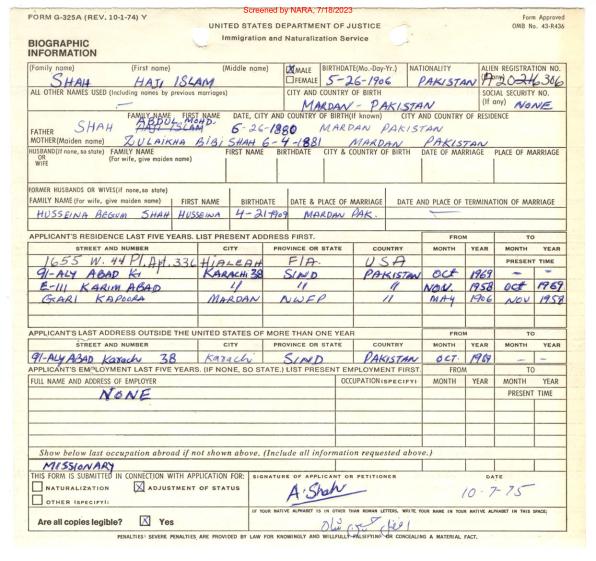 Screened by NARA, 7/18/2023
FORM G-325A (REV. 10-1-74) Y
UNITED STATES DEPARTMENT OF JUSTICE
Form Approved
OMB No. 43-R436
Immigration and Naturalization Service
BIOGRAPHIC
INFORMATION
(Family name) (First name) (Middle name) ☒MALE ☐FEMALE BIRTHDATE(Mo.-Day-Yr.) NATIONALITY ALIEN REGISTRATION NO.
SHAH HAJI ISLAM 5-26-1906 PAKISTAN
ALL OTHER NAMES USED (Including names by previous marriages) CITY AND COUNTRY OF BIRTH SOCIAL SECURITY NO.
— MARDAN - PAKISTAN (If any) NONE
FAMILY NAME FIRST NAME DATE, CITY AND COUNTRY OF BIRTH(If known) CITY AND COUNTRY OF RESIDENCE
ABDUL MOHD.
FATHER SHAH HAJI ISLAM 5-26-1880 MARDAN PAKISTAN
MOTHER(Maiden name) ZULAIKHA BIBI SHAH 6-4-1881 MARDAN PAKISTAN
HUSBAND(If none, so state) OR WIFE FAMILY NAME (For wife, give maiden name) FIRST NAME BIRTHDATE CITY & COUNTRY OF BIRTH DATE OF MARRIAGE PLACE OF MARRIAGE
FORMER HUSBANDS OR WIVES(if none,so state)
FAMILY NAME (For wife, give maiden name) FIRST NAME BIRTHDATE DATE & PLACE OF MARRIAGE DATE AND PLACE OF TERMINATION OF MARRIAGE
HUSSEINA BEGUM SHAH HUSSEINA 4-21-1909 MARDAN PAK. —
APPLICANT'S RESIDENCE LAST FIVE YEARS. LIST PRESENT ADDRESS FIRST. FROM TO
STREET AND NUMBER CITY PROVINCE OR STATE COUNTRY MONTH YEAR MONTH YEAR
1655 W. 44 Pl. Apt. 336 HIALEAH FlA. USA PRESENT TIME
91-ALY ABAD KI KARACHI 38 SIND PAKISTAN Oct 1969 — —
E-111 KARIM ABAD " " " NOV. 1958 Oct 1969
GARI KAPOORA MARDAN NWFP " MAY 1906 NOV 1958
APPLICANT'S LAST ADDRESS OUTSIDE THE UNITED STATES OF MORE THAN ONE YEAR FROM TO
STREET AND NUMBER CITY PROVINCE OR STATE COUNTRY MONTH YEAR MONTH YEAR
91-ALY ABAD Karachi 38 Karachi SIND PAKISTAN OCT. 1969 — —
APPLICANT'S EMPLOYMENT LAST FIVE YEARS. (IF NONE, SO STATE.) LIST PRESENT EMPLOYMENT FIRST. FROM TO
FULL NAME AND ADDRESS OF EMPLOYER OCCUPATION(SPECIFY) MONTH YEAR MONTH YEAR
NONE PRESENT TIME
Show below last occupation abroad if not shown above. (Include all information requested above.)
MISSIONARY
THIS FORM IS SUBMITTED IN CONNECTION WITH APPLICATION FOR: SIGNATURE OF APPLICANT OR PETITIONER DATE
☐ NATURALIZATION ☒ ADJUSTMENT OF STATUS A. Shah 10-7-75
☐ OTHER (SPECIFY):
IF YOUR NATIVE ALPHABET IS IN OTHER THAN ROMAN LETTERS, WRITE YOUR NAME IN YOUR NATIVE ALPHABET IN THIS SPACE:
Are all copies legible? ☒ Yes
PENALTIES: SEVERE PENALTIES ARE PROVIDED BY LAW FOR KNOWINGLY AND WILLFULLY FALSIFYING OR CONCEALING A MATERIAL FACT.